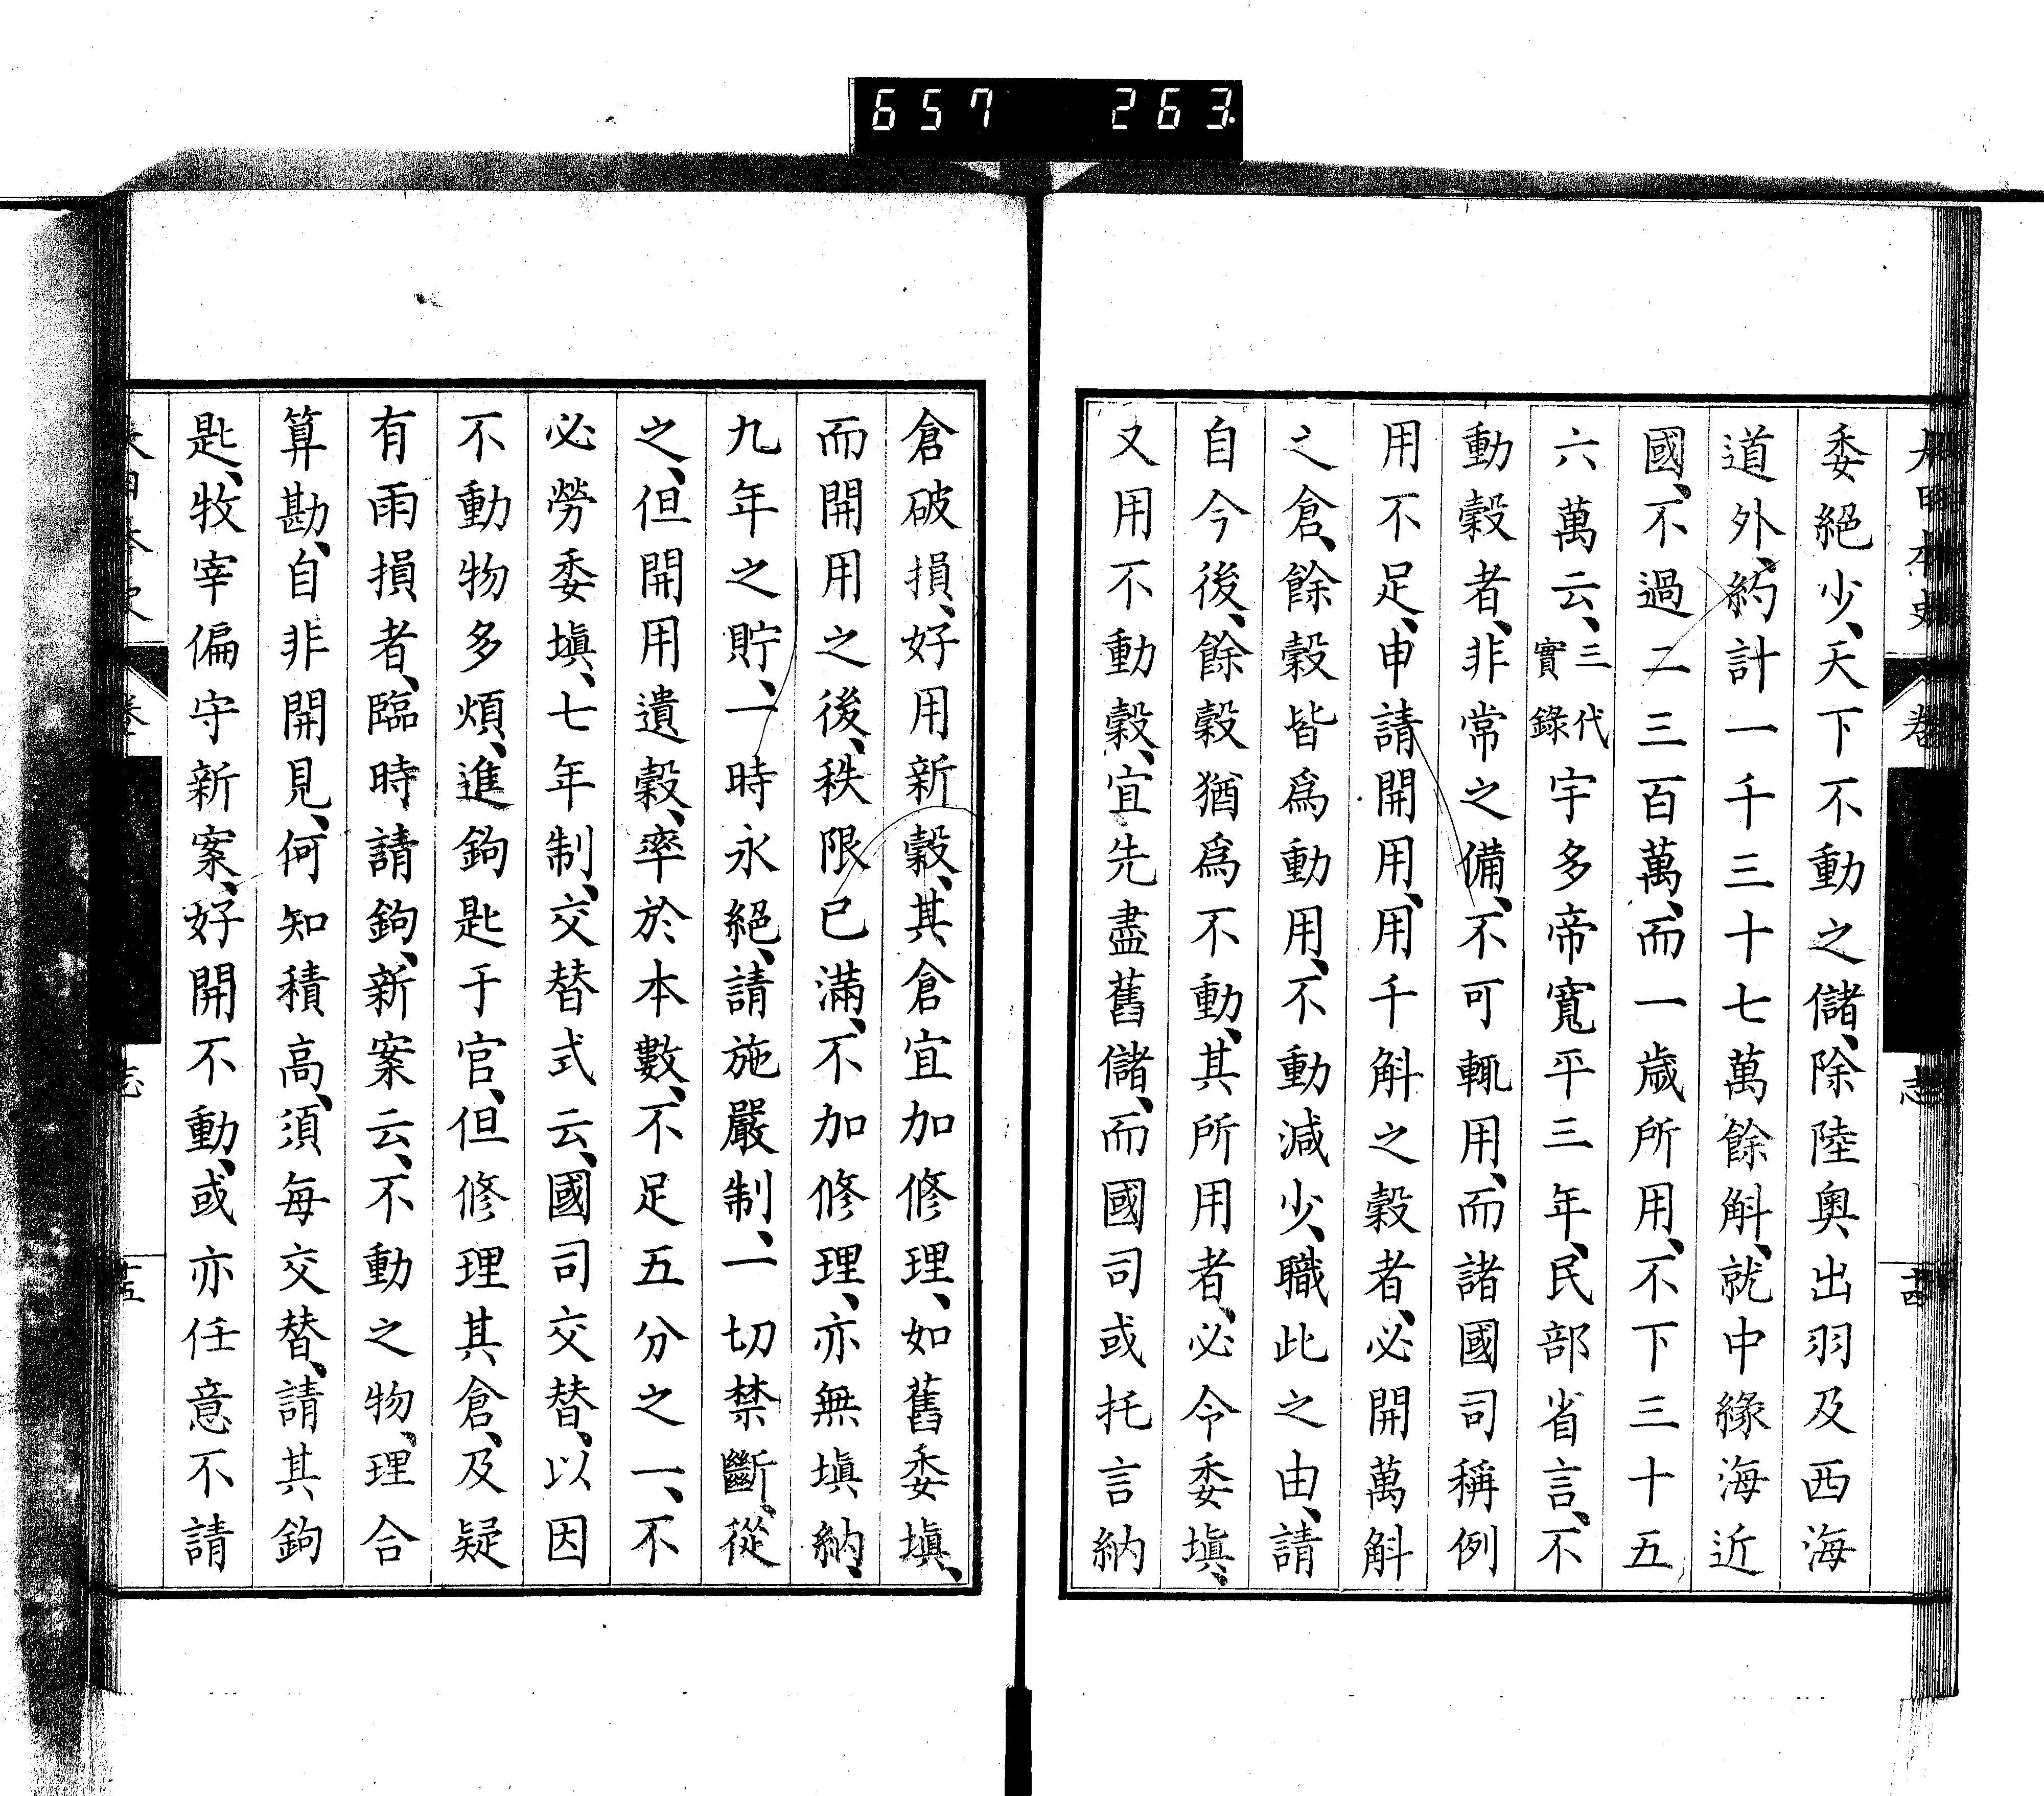 657 263
委絕少、天下不動之儲、除陸奧出羽及西海
道外、約計一千三十七萬餘斛、就中緣海近
國、不過二三百萬、而一歲所用、不下三十五
六萬云、三代實錄宇多帝寬平三年、民部省言、不
動穀者、非常之備、不可輒用、而諸國司稱例
用不足、申請開用、用千斛之穀者、必開萬斛
之倉、餘穀皆爲動用、不動減少、職此之由、請
自今後、餘穀猶爲不動、其所用者、必令委塡、
又用不動穀、宜先盡舊儲、而國司或托言納
倉破損、好用新穀、其倉宜加修理、如舊委塡、
而開用之後、秩限已滿、不加修理、亦無塡納、
九年之貯、一時永絕、請施嚴制、一切禁斷、從
之、但開用遺穀、率於本數、不足五分之一、不
必勞委塡、七年制、交替式云、國司交替、以因
不動物多煩、進鉤匙于官、但修理其倉、及疑
有雨損者、臨時請鉤、新案云、不動之物、理合
算勘、自非開見、何知積高、須每交替、請其鉤
匙、牧宰偏守新案、好開不動、或亦任意不請